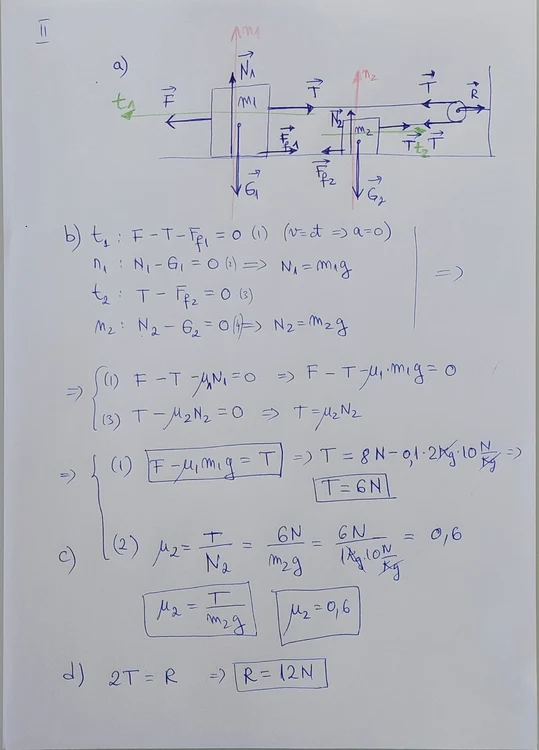 II
a)
n₁
N₁
n₂
t₁
F
m₁
T
T
R
N₂
m₂
Ff₁
Ff₂
T
t₂
T
G₁
G₂
b) t₁ : F - T - Ff₁ = 0 (1) (v = ct => a = 0)
n₁ : N₁ - G₁ = 0 (2) => N₁ = m₁g
=>
t₂ : T - Ff₂ = 0 (3)
n₂ : N₂ - G₂ = 0 (4) => N₂ = m₂g
=> (1) F - T - μ₁N₁ = 0 => F - T - μ₁·m₁g = 0
(3) T - μ₂N₂ = 0 => T = μ₂N₂
=> (1) F - μ₁m₁g = T => T = 8N - 0,1·2kg·10 N/kg =>
T = 6N
c) (2) μ₂ = T/N₂ = 6N/m₂g = 6N/1kg·10N/kg = 0,6
μ₂ = T/m₂g μ₂ = 0,6
d) 2T = R => R = 12N